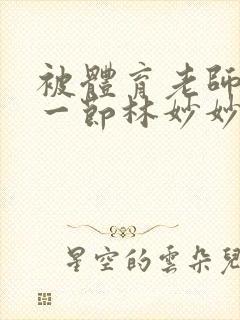 被體育老師
一節林妙妙
星空的雲朵兒